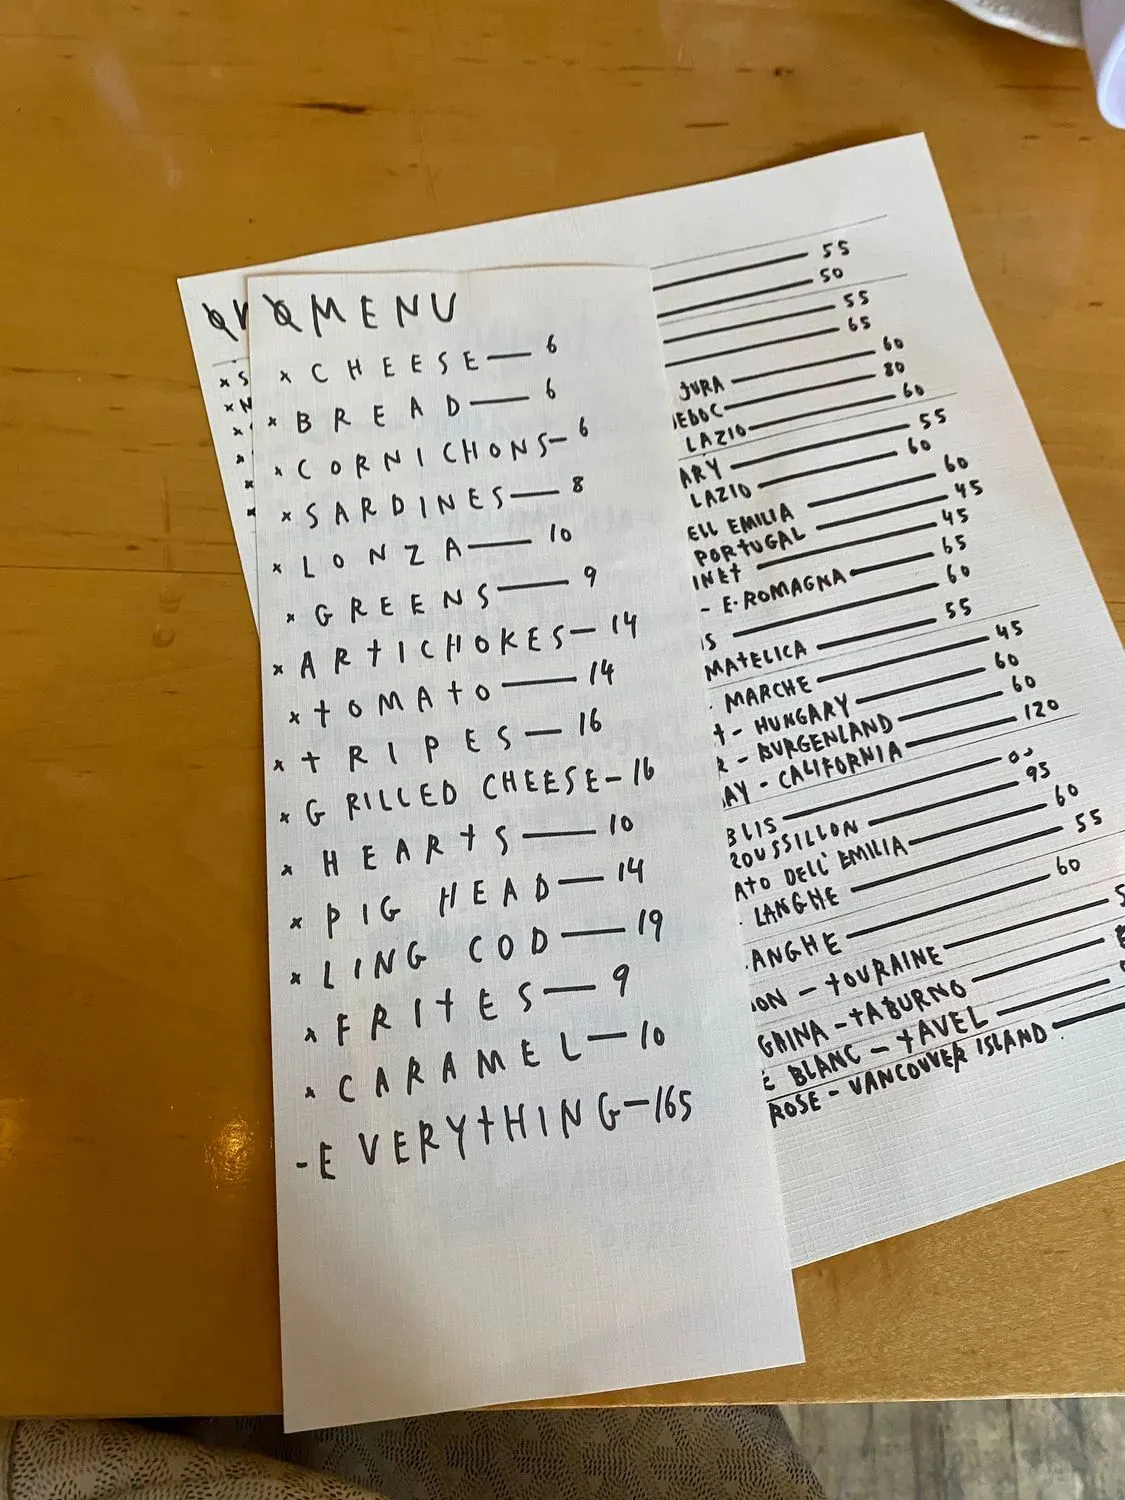 MENU
x CHEESE — 6
x BREAD — 6
x CORNICHONS — 6
x SARDINES — 8
x LONZA — 10
x GREENS — 9
x ARTICHOKES — 14
x TOMATO — 14
x TRIPES — 16
x GRILLED CHEESE - 16
x HEARTS — 10
x PIG HEAD — 14
x LING COD — 19
x FRITES — 9
x CARAMEL — 10
- EVERYTHING - 165
55
50
55
65
JURA — 60
80
LAZIO — 60
55
LAZIO — 60
EMILIA — 60
PORTUGAL — 45
45
- E. ROMAGNA — 65
60
MATELICA — 55
MARCHE — 45
- HUNGARY — 60
- BURGENLAND — 60
- CALIFORNIA — 120
ROUSSILLON — 95
DELL' EMILIA — 60
LANGHE — 55
60
- TOURAINE
- TABURNO
BLANC - TAVEL
ROSE - VANCOUVER ISLAND